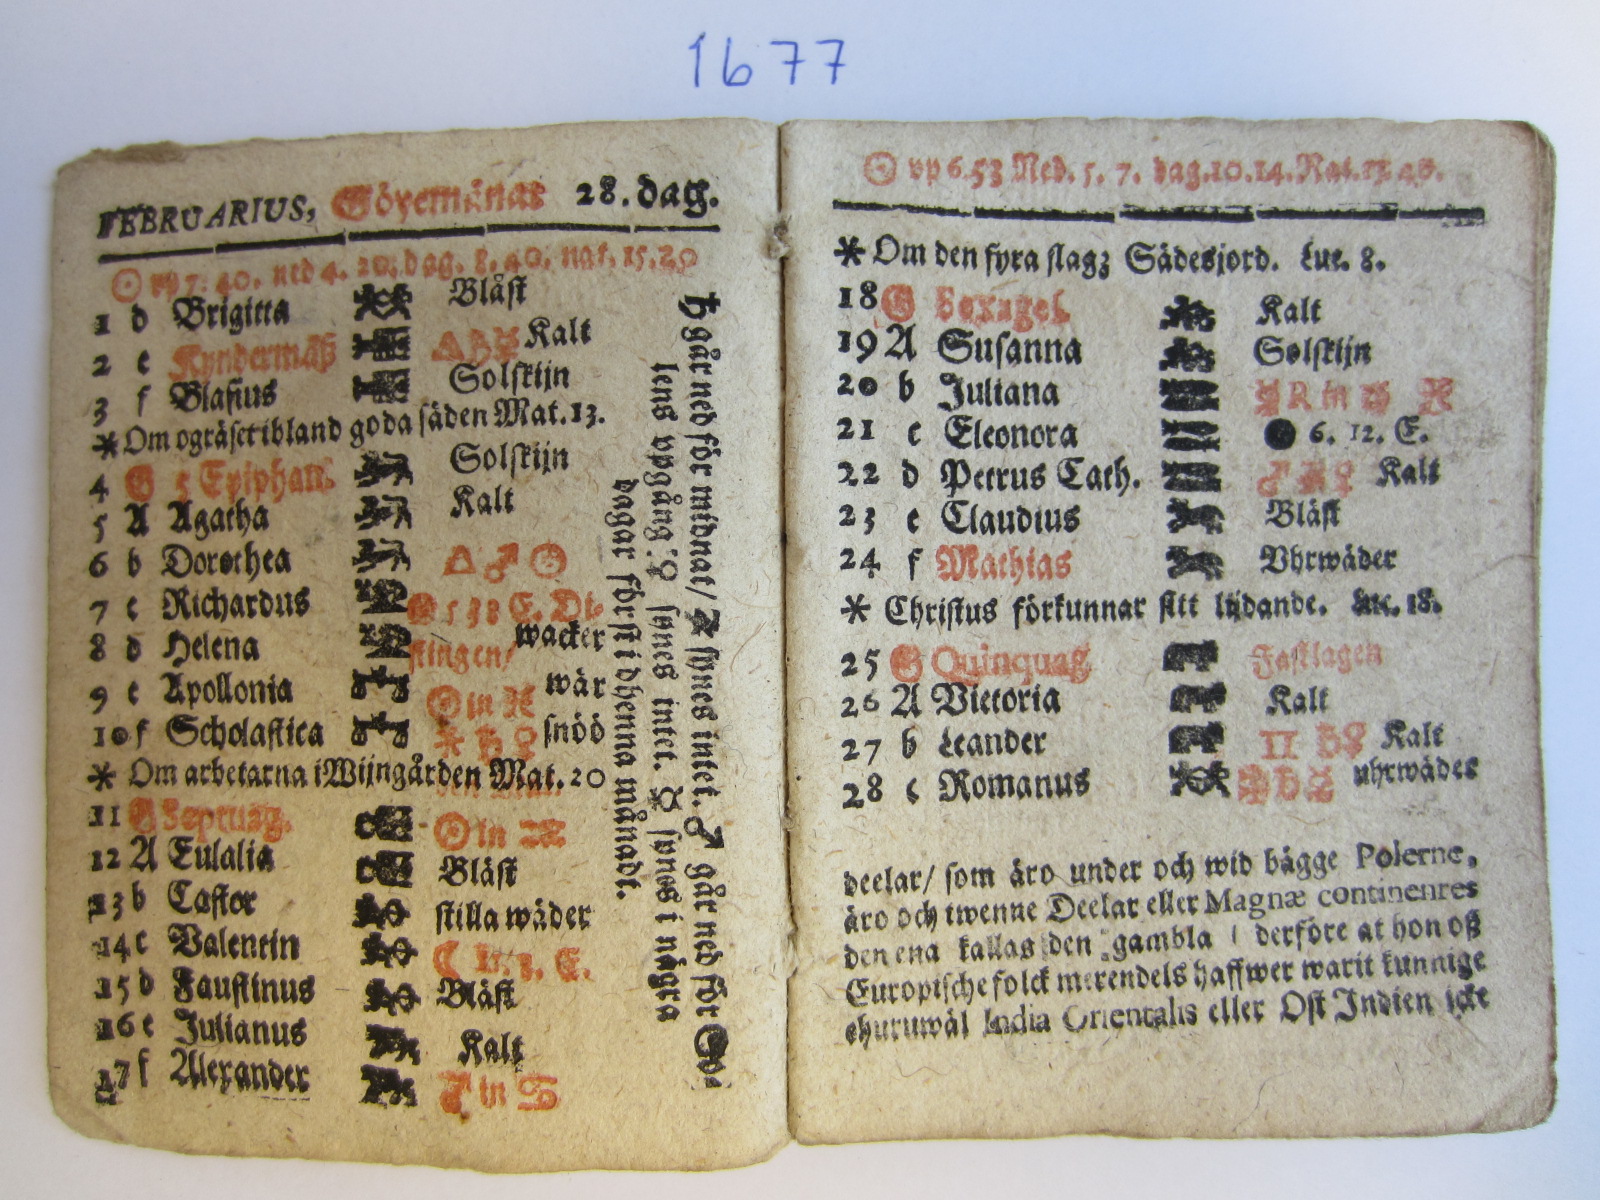 1677
FEBRUARIUS, Göyemånat 28. dag.
☉ vp 7. 40. ned 4. 20. dag. 8. 40. nat. 15. 20
1 d Brigitta Blåst
2 e Kyndermäß △ ♄ ☿ Kalt
3 f Blasius Solskijn
* Om ogräset ibland goda säden Mat. 13.
4 G 5 Epiphan. Solskijn
5 A Agatha Kalt
6 b Dorothea △ ♂ ☉
7 c Richardus 5 38 E. Di-
8 d Helena stingen/ wacker
9 e Apollonia ☉ in ♓ wär
10 f Scholastica * ♄ ♀ snöö
* Om arbetarna i Wijngården Mat. 20
11 G Septuag. ☉ in
12 A Eulalia Blåst
13 b Castor stilla wäder
14 c Valentin ☾ E.
15 d Faustinus Blåst
16 e Julianus Kalt
17 f Alexander ♂ in ♋
♄ går ned för midnat/ ♃ synes intet. ♂ går ned för So-
lens vpgång. ♀ synes intet. ☿ synes i några
dagar först i dhenna månadt.
☉ vp 6.53 Ned. 5. 7. dag. 10. 14. Nat. 13 46.
* Om den fyra slagz Sädesjord. Luc. 8.
18 G Sexages. Kalt
19 A Susanna Solskijn
20 b Juliana ☿ R in
21 c Eleonora ● 6. 12. E.
22 d Petrus Cath. ♂ ♀ Kalt
23 e Claudius Blåst
24 f Mathias Vhrwäder
* Christus förkunnar sitt lijdande. Luc. 18.
25 G Quinquag Fastlagen
26 A Victoria Kalt
27 b Leander ♄ ♀ Kalt
28 c Romanus uhrwädes
deelar/ som äro under och wid bägge Polerne,
äro och twenne Deelar eller Magnæ continentes
den ena kallas den gambla / derföre at hon oß
Europische folck merendels haffwer warit kunnige
ehuruwäl India Orientalis eller Ost Indien icke